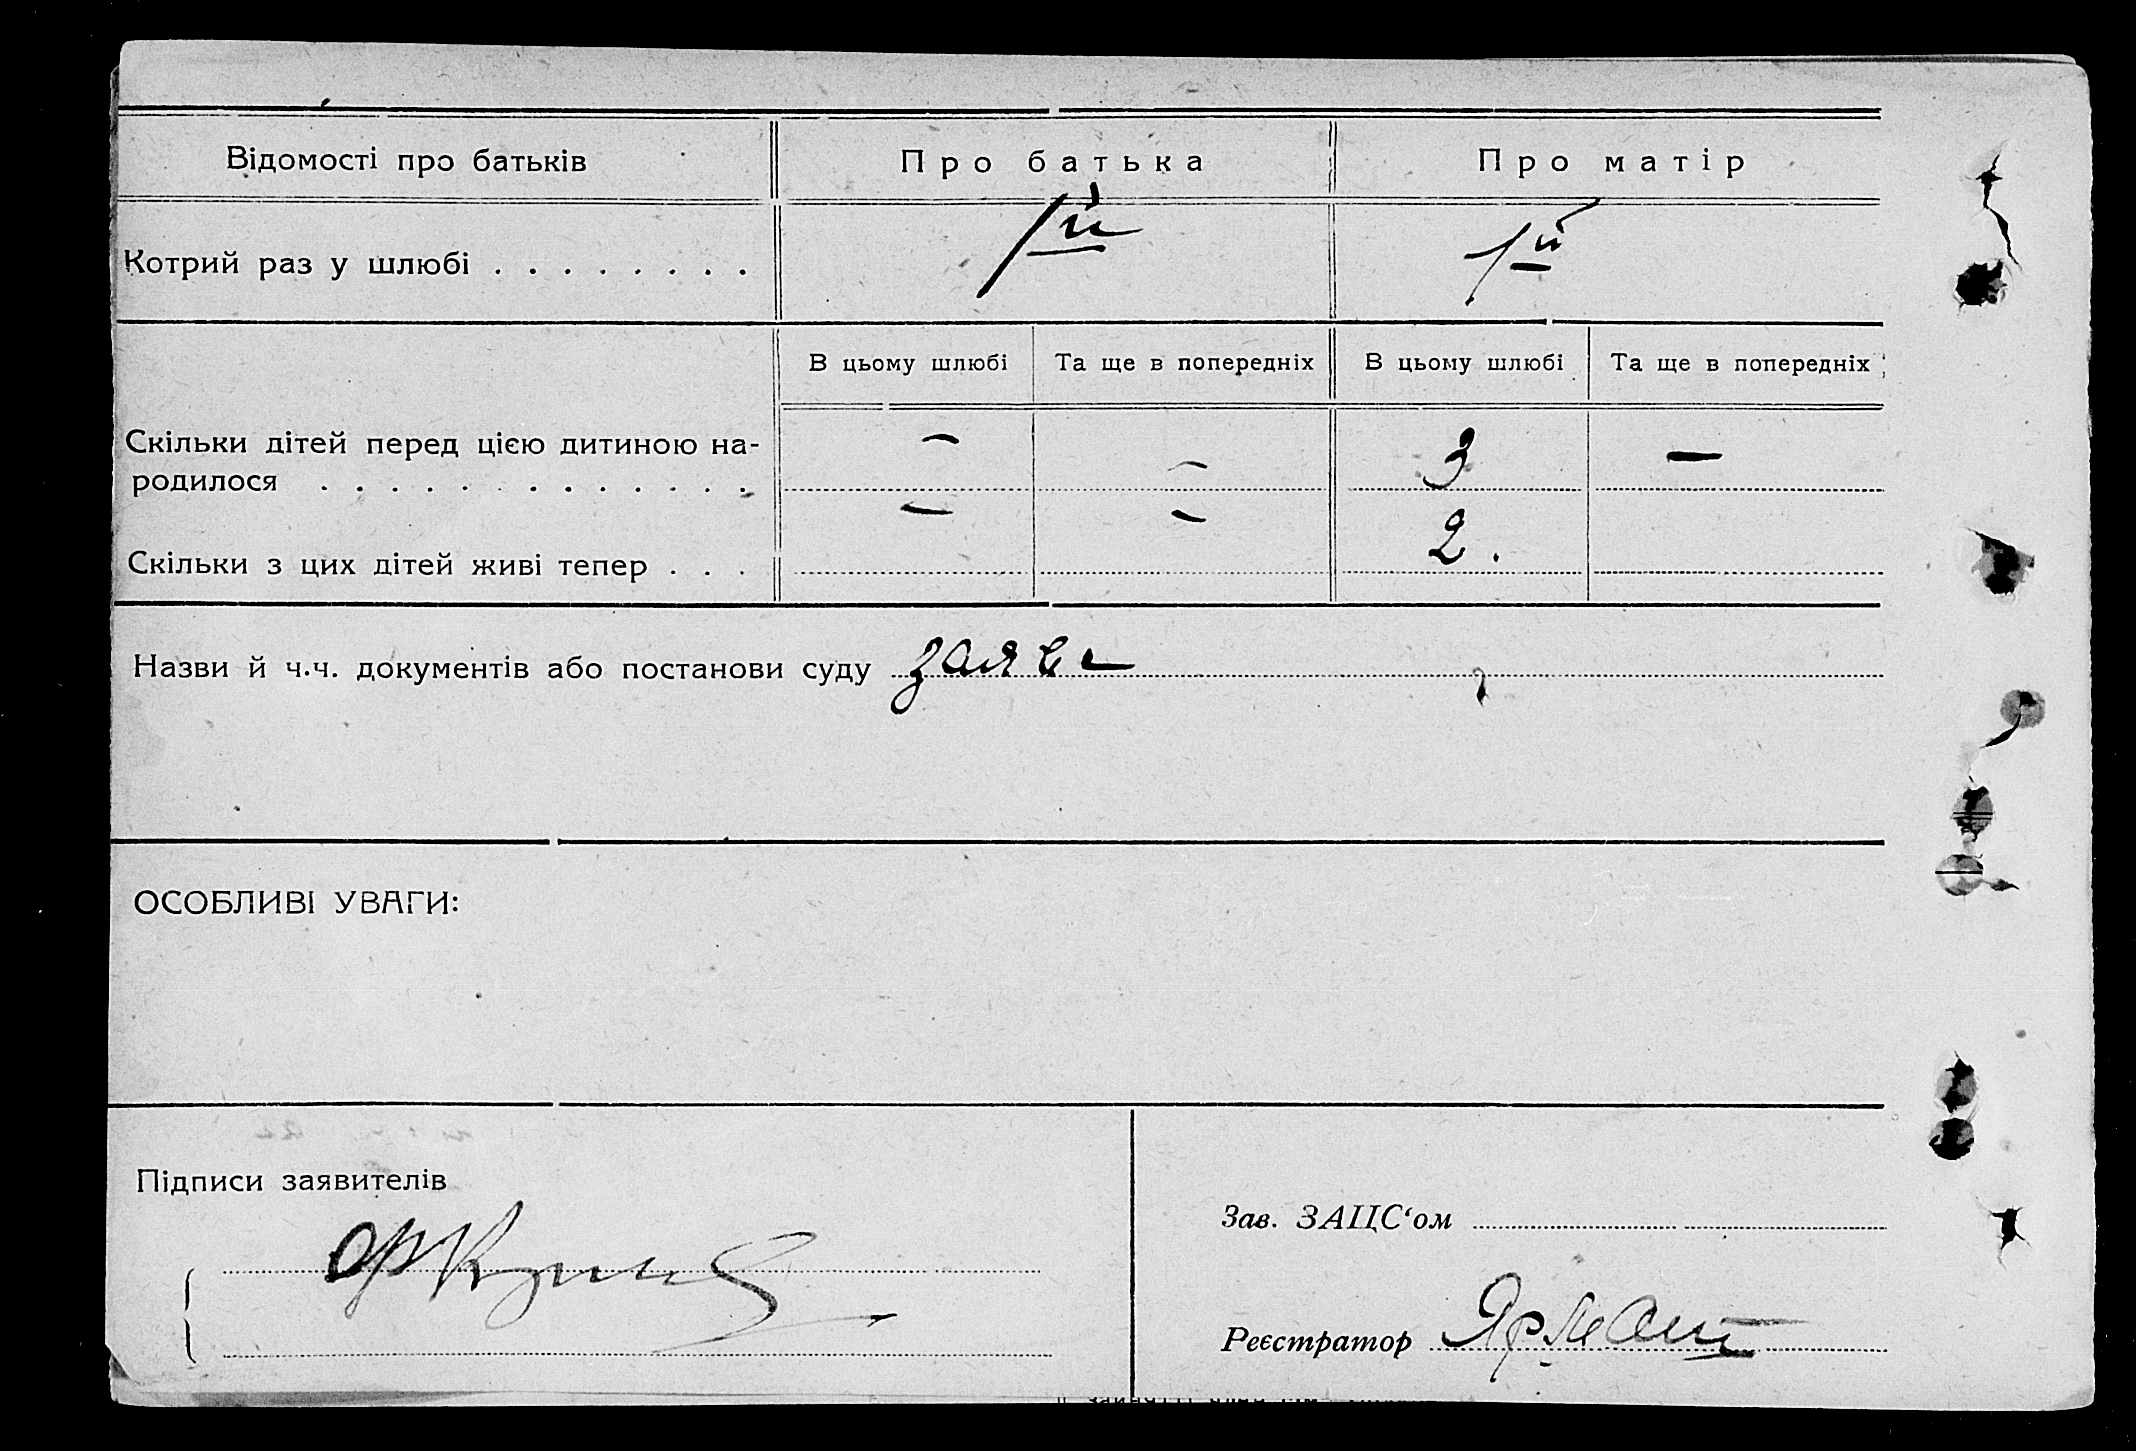 Відомості про батьків Про батька Про матір
Котрий раз у шлюбі . . . . . . . . 1й 1й
В цьому шлюбі Та ще в попередніх В цьому шлюбі Та ще в попередніх
Скільки дітей перед цією дитиною на-
родилося . . . . . . . . . . . . . – – 3 –
Скільки з цих дітей живі тепер . . . – – 2.
Назви й ч.ч. документів або постанови суду заява
ОСОБЛИВІ УВАГИ:
Підписи заявителів
Зав. ЗАЦС‘ом
Реєстратор